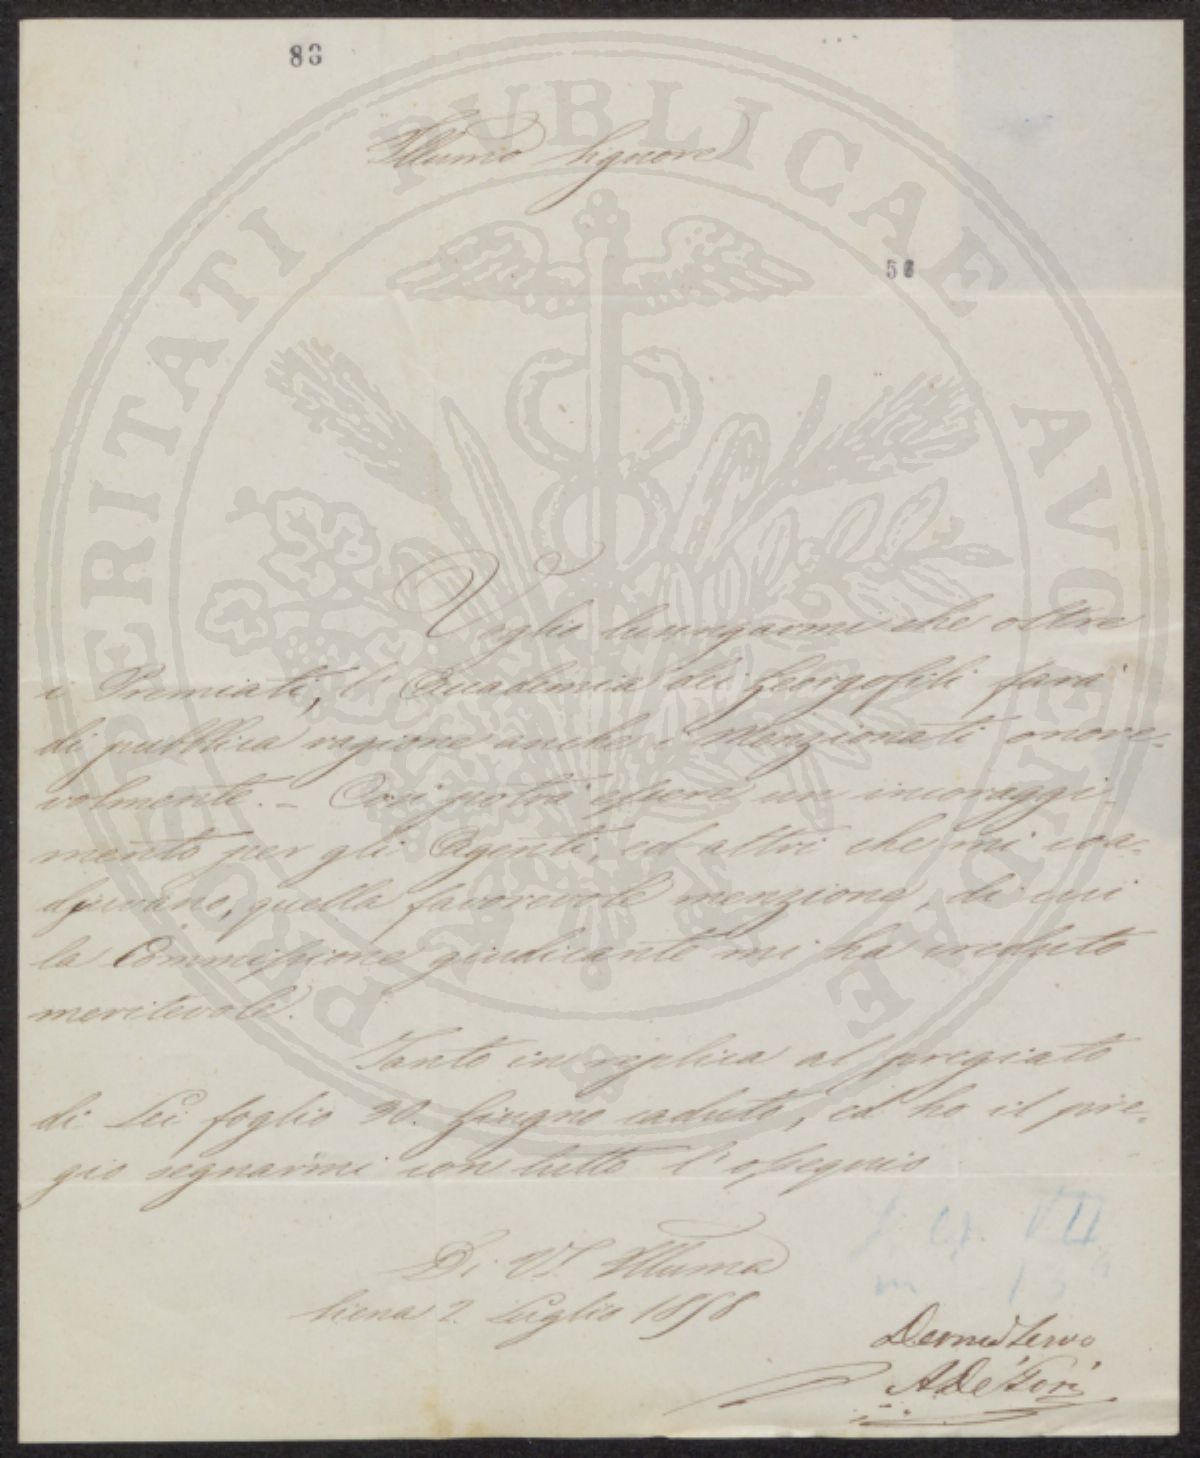 86
Illumo Signore
56
Voglio lusingarmi che oltre
i Premiati, l'Accademia dei Georgofili farà
di pubblica ragione anche i Menzionati onore-
volmente. - Così potrà essere un incoraggi-
mento per gli Agenti, ed altri che mi coa-
djuvano, quella favorevole menzione, di cui
la Commissione giudicante mi ha creduto
meritevole.
Tanto in replica al pregiato
di Lei foglio 30. Giugno caduto, ed ho il pre-
gio segnarmi con tutto l'ossequio
Di V.S. Illuma
Siena 2. Luglio 1858
Devmo Servo
A De' Gori
PROSPERITATI PVBLICAE AVGENDAE